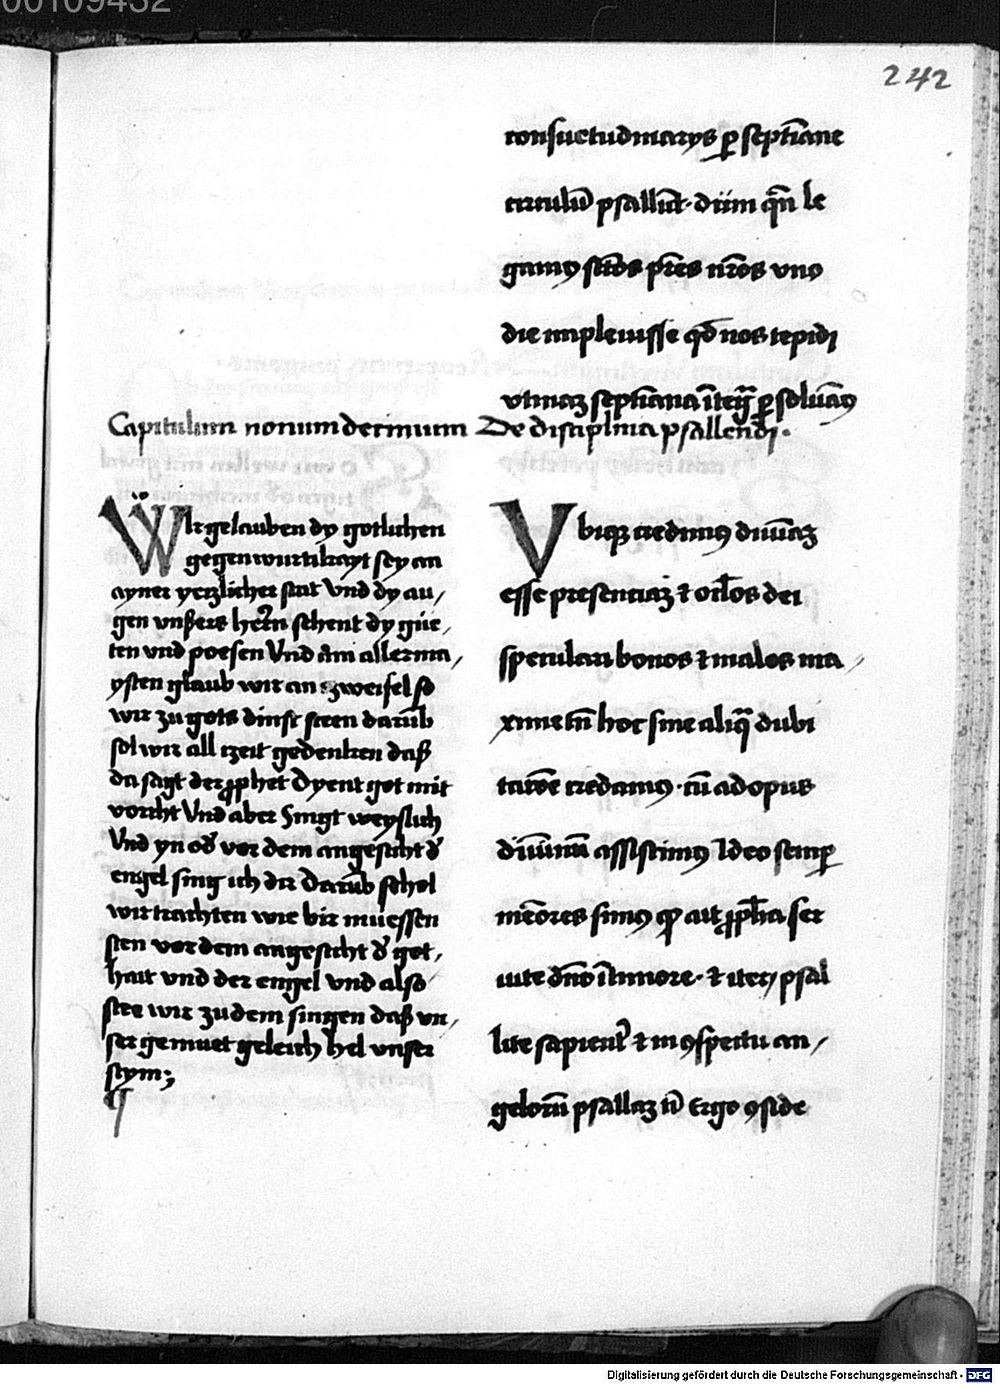 00109432
242
consuetudinarys ꝑ septīane
circulū psallūt · dūm qn̄ le
gamꝰ sc̄tos pr̄es nr̄os vno
die impleuisse qđ nos tepidi
vtinaꝫ septīana īteg̃ ꝑsoluāꝰ
Capitulum nonumdecimum De disciplina psallendi ·
WIr gelauben dy gotlichen
gegenwurtikayt sey an
ayner yeczlicher stat Vnd dy au/
gen vnßers herrn schent dy gůe/
ten vnd poesen Vnd am allerma/
ysten glaub wir an zweifel so
wir zu gots dinst steen darūb
sol wir all czeit gedenken daß
da sagt der ꝓphet Dyent got mit
vorcht Vnd aber Singt weyslich
Vnd yn od̕ vor dem angesicht d̕
engel sing ich dir Darūb schol
wir trachten wie bir muessen
sten vor dem angesicht d̕ got/
hait vnd der engel vnd also
stee wir zu dem singen daß vn/
ser gemuet geleich hel vnser
stym;
¶
Vbiqꝫ credimꝰ diuināꝫ
esse presenciaꝫ ⁊ oc̄los dei
speculari bonos ⁊ malos ma/
xime tn̄ hoc sine aliq̃ dubi
tac̄oe credamꝰ · cū ad opus
diuinū assistimꝰ Ideo semꝑ
mēores simꝰ qꝫ ait ꝓph̄a ser
uite dn̄o ī timore · ⁊ iteꝝ psal
lite sapient̕ ⁊ in ꝯspectu an/
gelorū psallaꝫ t̄ Ergo ꝯside
Digitalisierung gefördert durch die Deutsche Forschungsgemeinschaft - DFG